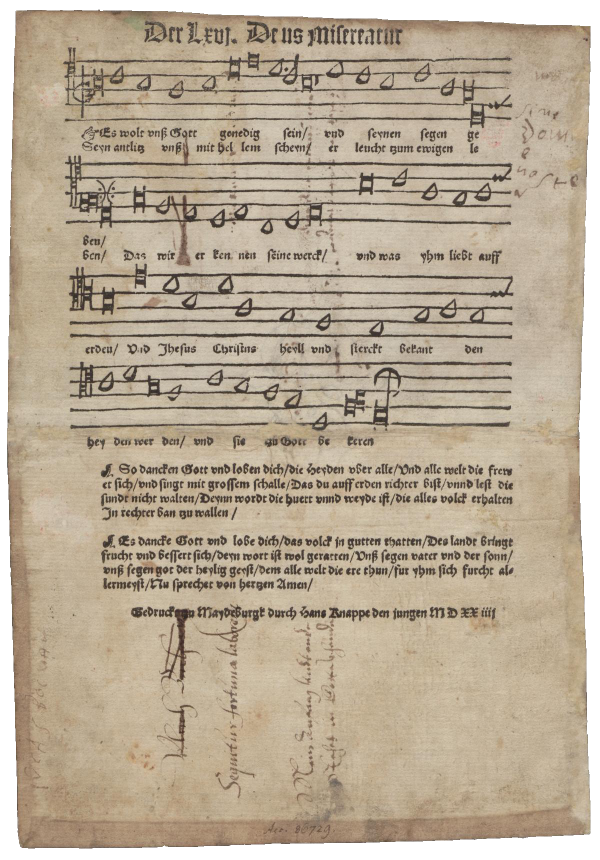 Der Lxvj. Deus Misereatur
Es wolt vnß Gott genedig sein/ vnd seynen segen ge
Seyn antlitz vnß mit hel lem scheyn/ er leucht tzum ewigen le
ben/
ben/ Das wir er ken nen seine werck/ vnd was yhm liebt auff
erden/ Vnd Jhesus Christus heyll vnd sterckt bekant den
hey den wer den/ vnd sie zu Gott be keren
¶ So dancken Gott vnd loben dich/die Heyden vber alle/Vnd alle welt die frew
et sich/vnd singt mit grossem schalle/Das du auff erden richter bist/vnnd lest die
sundt nicht walten/Deynn wordt die huett vnnd weyde ist/die alles volck erhalten
Jn rechter ban tzu wallen /
¶ Es dancke Gott vnd lobe dich/das volck jn gutten thatten/Des landt bringt
frucht vnd bessert sich/deyn wort ist wol geratten/Vnß segen vater vnd der sonn/
vnß segen got der heylig geyst/dem alle welt die ere thun/fur yhm sich furcht al-
lermeyst/Nu sprechet von hertzen Amen/
Gedruckt zu Maydeburgk durch Hans Knappe den jungen M D XX iiij
Sequitur fortuna